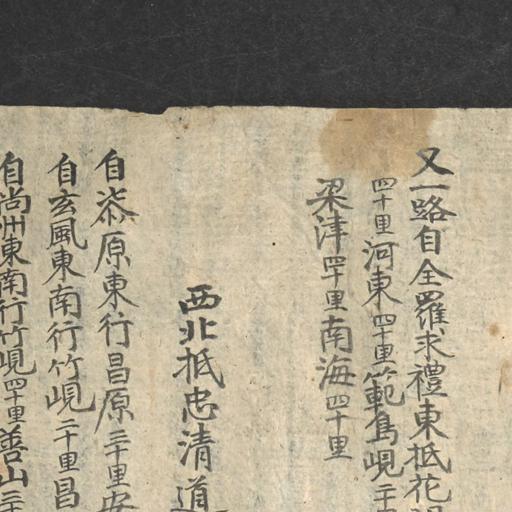 又一路自全羅求禮東抵花
四十里河東四十里範鳥峴二十
梁津四十里南海四十里
西北抵忠清道
自恭原東行昌原三十里安
自玄風東南行竹峴二十里昌
自尚州東南行竹峴四十里善山三